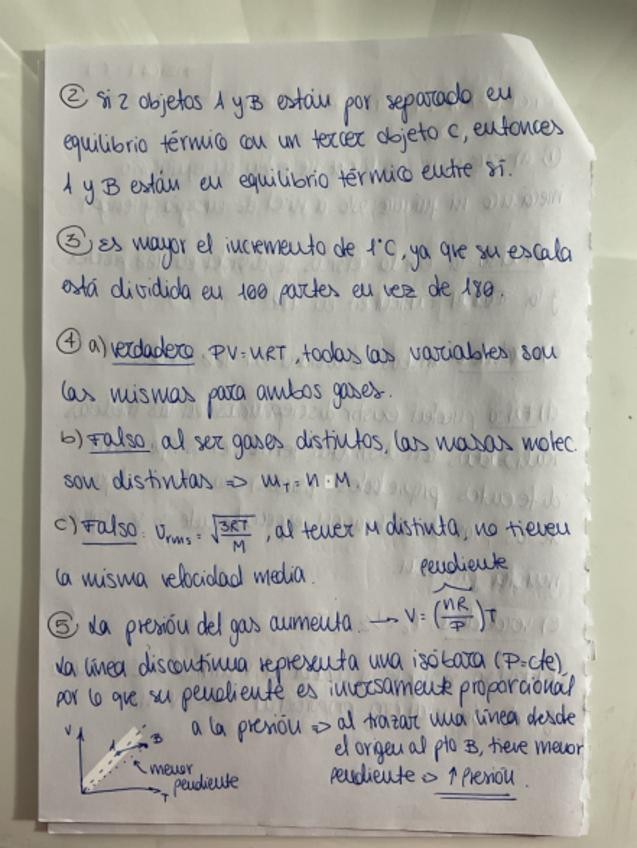 ② Si 2 objetos A y B están por separado en
equilibrio térmico con un tercer objeto C, entonces
A y B están en equilibrio térmico entre sí.
③ Es mayor el incremento de 1°C, ya que su escala
está dividida en 100 partes en vez de 180.
④ a) verdadero. PV=nRT, todas las variables son
las mismas para ambos gases.
b) Falso, al ser gases distintos, las masas molec.
son distintas => m_T = n · M.
c) Falso. v_rms = √(3RT/M), al tener M distinta, no tienen
la misma velocidad media.
pendiente
⑤ La presión del gas aumenta. → V = (nR/P)T
La línea discontinua representa una isóbara (P=cte),
por lo que su pendiente es inversamente proporcional
a la presión => al trazar una línea desde
el origen al pto B, tiene menor
pendiente => ↑ Presión.
V
A
B
menor
pendiente
T